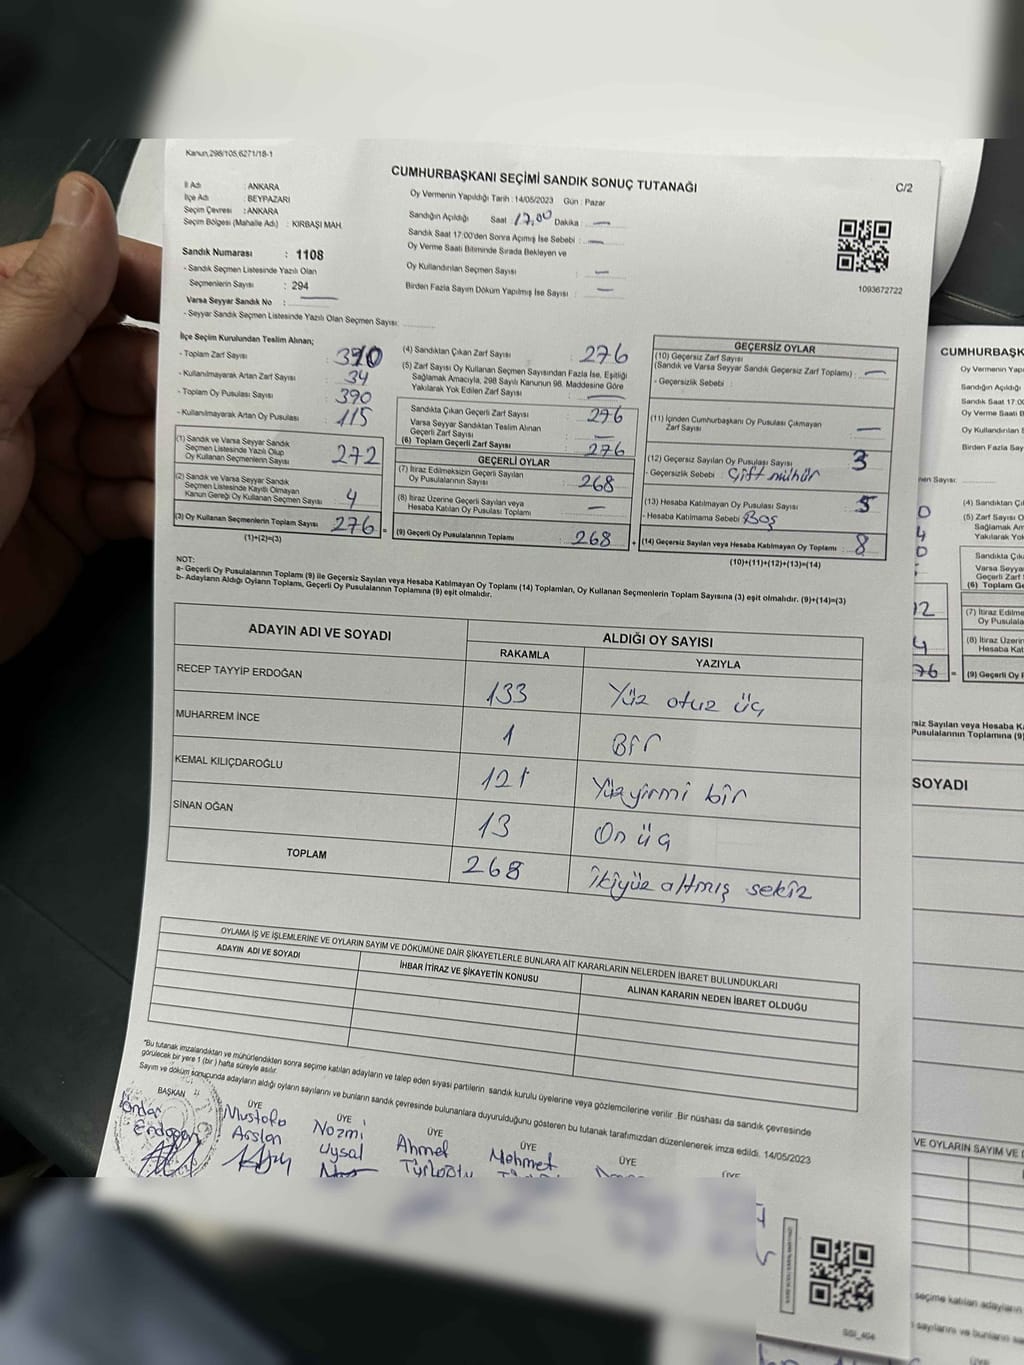 Kanun,298/105,6271/18-1
CUMHURBAŞKANI SEÇİMİ SANDIK SONUÇ TUTANAĞI
C/2
İl Adı : ANKARA
İlçe Adı : BEYPAZARI
Seçim Çevresi : ANKARA
Seçim Bölgesi (Mahalle Adı) : KIRBAŞI MAH.
Sandık Numarası : 1108
- Sandık Seçmen Listesinde Yazılı Olan
Seçmenlerin Sayısı : 294
Varsa Seyyar Sandık No :
- Seyyar Sandık Seçmen Listesinde Yazılı Olan Seçmen Sayısı:
Oy Vermenin Yapıldığı Tarih : 14/05/2023 Gün : Pazar
Sandığın Açıldığı Saat : 17,00 Dakika : —
Sandık Saat 17:00'den Sonra Açılmış İse Sebebi : —
Oy Verme Saati Bitiminde Sırada Bekleyen ve
Oy Kullandırılan Seçmen Sayısı : —
Birden Fazla Sayım Döküm Yapılmış İse Sayısı : —
1093672722
İlçe Seçim Kurulundan Teslim Alınan;
- Toplam Zarf Sayısı 310
- Kullanılmayarak Artan Zarf Sayısı : 34
- Toplam Oy Pusulası Sayısı : 390
- Kullanılmayarak Artan Oy Pusulası : 115
(1) Sandık ve Varsa Seyyar Sandık
Seçmen Listesinde Yazılı Olup
Oy Kullanan Seçmenlerin Sayısı : 272
(2) Sandık ve Varsa Seyyar Sandık
Seçmen Listesinde Kayıtlı Olmayan
Kanun Gereği Oy Kullanan Seçmen Sayısı : 4
(3) Oy Kullanan Seçmenlerin Toplam Sayısı : 276
(1)+(2)=(3)
(4) Sandıktan Çıkan Zarf Sayısı : 276
(5) Zarf Sayısı Oy Kullanan Seçmen Sayısından Fazla İse, Eşitliği
Sağlamak Amacıyla, 298 Sayılı Kanunun 98. Maddesine Göre
Yakılarak Yok Edilen Zarf Sayısı : —
Sandıkta Çıkan Geçerli Zarf Sayısı : 276
Varsa Seyyar Sandıktan Teslim Alınan
Geçerli Zarf Sayısı : —
(6) Toplam Geçerli Zarf Sayısı : 276
GEÇERLİ OYLAR
(7) İtiraz Edilmeksizin Geçerli Sayılan
Oy Pusulalarının Sayısı : 268
(8) İtiraz Üzerine Geçerli Sayılan veya
Hesaba Katılan Oy Pusulası Toplamı : —
(9) Geçerli Oy Pusulalarının Toplamı : 268
GEÇERSİZ OYLAR
(10) Geçersiz Zarf Sayısı
(Sandık ve Varsa Seyyar Sandık Geçersiz Zarf Toplamı) : —
- Geçersizlik Sebebi :
(11) İçinden Cumhurbaşkanı Oy Pusulası Çıkmayan
Zarf Sayısı : —
(12) Geçersiz Sayılan Oy Pusulası Sayısı : 3
- Geçersizlik Sebebi : Çift mühür
(13) Hesaba Katılmayan Oy Pusulası Sayısı : 5
- Hesaba Katılmama Sebebi : Boş
(14) Geçersiz Sayılan veya Hesaba Katılmayan Oy Toplamı : 8
(10)+(11)+(12)+(13)=(14)
NOT:
a- Geçerli Oy Pusulaları Toplamı (9) ile Geçersiz Sayılan veya Hesaba Katılmayan Oy Toplamı (14) Toplamları, Oy Kullanan Seçmenlerin Toplam Sayısına (3) eşit olmalıdır. (9)+(14)=(3)
b- Adayların Aldığı Oyların Toplamı, Geçerli Oy Pusulalarının Toplamına (9) eşit olmalıdır.
ADAYIN ADI VE SOYADI
ALDIĞI OY SAYISI
RAKAMLA YAZIYLA
RECEP TAYYİP ERDOĞAN 133 Yüz otuz üç
MUHARREM İNCE 1 Bir
KEMAL KILIÇDAROĞLU 121 Yüzyirmi bir
SİNAN OĞAN 13 On üç
TOPLAM 268 İkiyüz altmış sekiz
OYLAMA İŞ VE İŞLEMLERİNE VE OYLARIN SAYIM VE DÖKÜMÜNE DAİR ŞİKAYETLERLE BUNLARA AİT KARARLARIN NELERDEN İBARET BULUNDUKLARI
ADAYIN ADI VE SOYADI
İHBAR İTİRAZ VE ŞİKAYETİN KONUSU
ALINAN KARARIN NEDEN İBARET OLDUĞU
"Bu tutanak imzalandıktan ve mühürlendikten sonra seçime katılan adayların ve talep eden siyasi partilerin sandık kurulu üyelerine veya gözlemcilerine verilir. Bir nüshası da sandık çevresinde
görülecek bir yere 1 (bir) hafta süreyle asılır.
Sayım ve döküm sonucunda adayların aldığı oyların sayılarını ve bunların sandık çevresinde bulunanlara duyurulduğunu gösteren bu tutanak tarafımızdan düzenlenerek imza edildi. 14/05/2023
BAŞKAN ÜYE ÜYE ÜYE ÜYE ÜYE
Önder Erdogan
Mustafa Arslan
Nazmi Uysal
Ahmet
Mehmet
SSI_464
CUMHURBAŞK
Oy Vermenin Yapı
Sandığın Açıldığı
Sandık Saat 17:00
Oy Verme Saati B
Oy Kullandırılan S
Birden Fazla Say
men Sayısı:
(4) Sandıktan Çı
(5) Zarf Sayısı O
Sağlamak Ama
Yakılarak Yok
Sandıkta Çıka
Varsa Seyyar
Geçerli Zarf Sa
(6) Toplam Ge
(7) İtiraz Edilme
Oy Pusulala
(8) İtiraz Üzerin
Hesaba Kat
76 = (9) Geçerli Oy P
rsiz Sayılan veya Hesaba K
Pusulalarının Toplamına (9)
SOYADI
VE OYLARIN SAYIM VE D
seçime katılan adayların
sayılarını ve bunların san
ÜYE